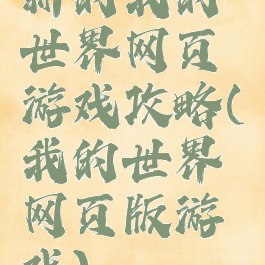 新的我的
世界网页
游戏攻略(
我的世界
网页版游
戏)